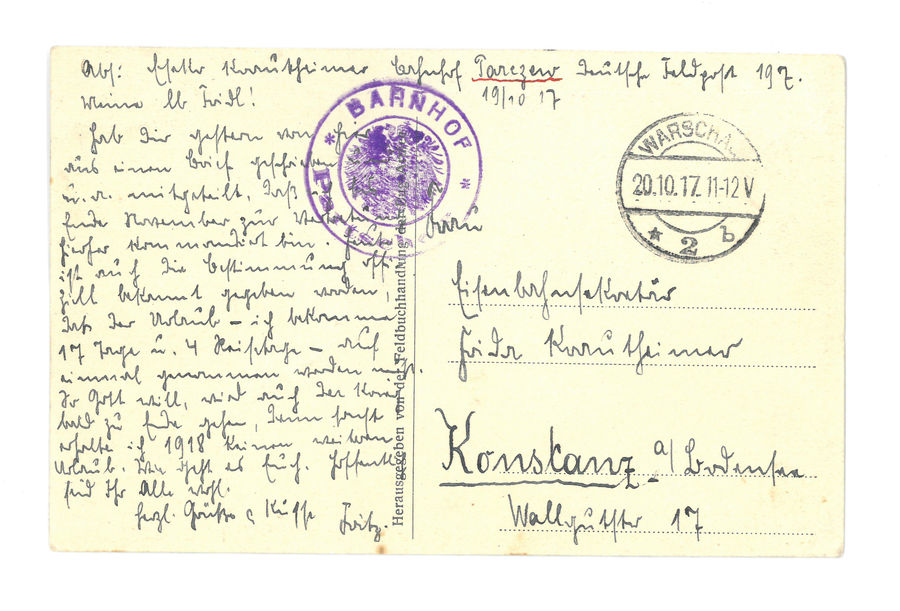 Abs: Eisenb. Sekr. Krautheimer Bahnhof Parczew Deutsche Feldpost 197.
19/10 17
Meine lb Fridl!
Hab Dir gestern von hier
aus einen Brief geschrieben
u. a. mitgeteilt, daß
Ende November zur Vertretung
hierher kommandiert bin. Heute
ist auch die Bestimmung offi
ziell bekannt gegeben worden,
daß der Urlaub – ich bekomme
17 Tage u. 4 Reisetage – auf
einmal genommen werden muß.
So Gott will, wird auch der Krieg
bald zu Ende gehen, denn sonst
erhalte ich 1918 keinen weiteren
Urlaub. Wie geht es Euch. Hoffentl.
seid Ihr Alle wohl.
Herzl. Grüße & Küsse
Fritz.
BAHNHOF
Herausgegeben von der Feldbuchhandlung der
WARSCHA
20.10.17. 11-12 V
* 2 b
Frau
Eisenbahnsekretär
Frida Krautheimer
Konstanz a/Bodensee
Wallgutstr 17